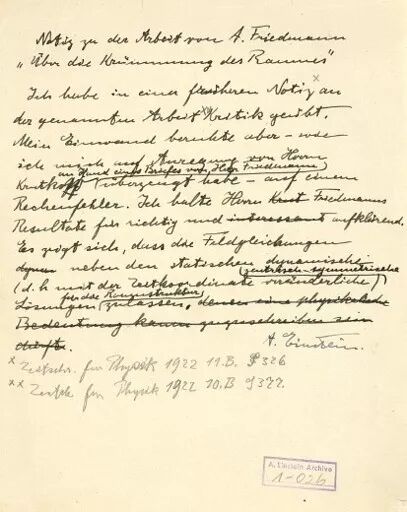 Notiz zu der Arbeit von A. Friedmann
„Über die Krümmung des Raumes"
Ich habe in einer früheren Notiz x an
der genannten Arbeit xx Kritik geübt.
Mein Einwand beruhte aber - wie
ich mich auf Anregung von Herrn
an Hand eines Briefes von Herr Friedmann
Krutkoff überzeugt habe - auf einem
Rechenfehler. Ich halte Herrn Friedmanns
Resultate für richtig und interessant aufklärend.
Es zeigt sich, dass die Feldgleichungen
neben den statischen dynamische
zentrisch-symmetrische
(d. h. mit der Zeitkoordinate veränderliche)
für die Raumstruktur
Lösungen zulassen, denen eine physikalische
Bedeutung kaum zuzuschreiben sein
dürfte.
A. Einstein.
x Zeitschr. für Physik 1922 11.B. S 326
xx Zeitschr. für Physik 1922 10.B S 377.
A. Einstein Archive
1-026